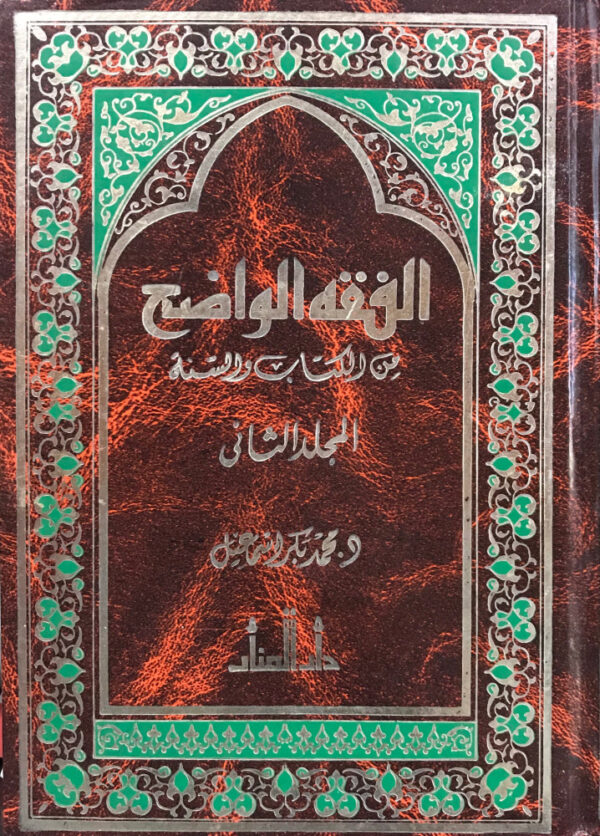 الفقه الواضح
من الكتاب والسنة
المجلد الثانى
د. محمد بكر إسماعيل
دار المنار